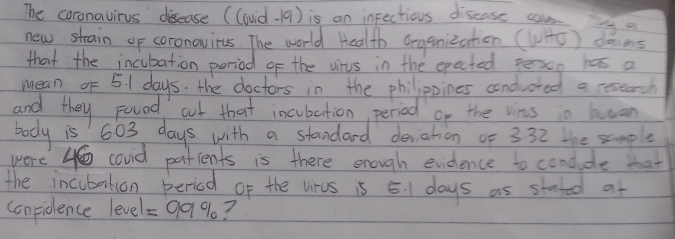 The coronavirus disease (Covid-19) is an infectious disease by a
new strain of coronavirus. The world Health Organization (WHO) claims
that the incubation period of the virus in the person has a
mean of 5.1 days. the doctors in the philippines conducted a research
and they found out that incubation period of the virus in human
body is 603 days with a standard deviation of 3.32 the sample
were 46 covid patients is there enough evidence to conclude that
the incubation period of the virus is 5.1 days as stated at
confidence level = 99%?